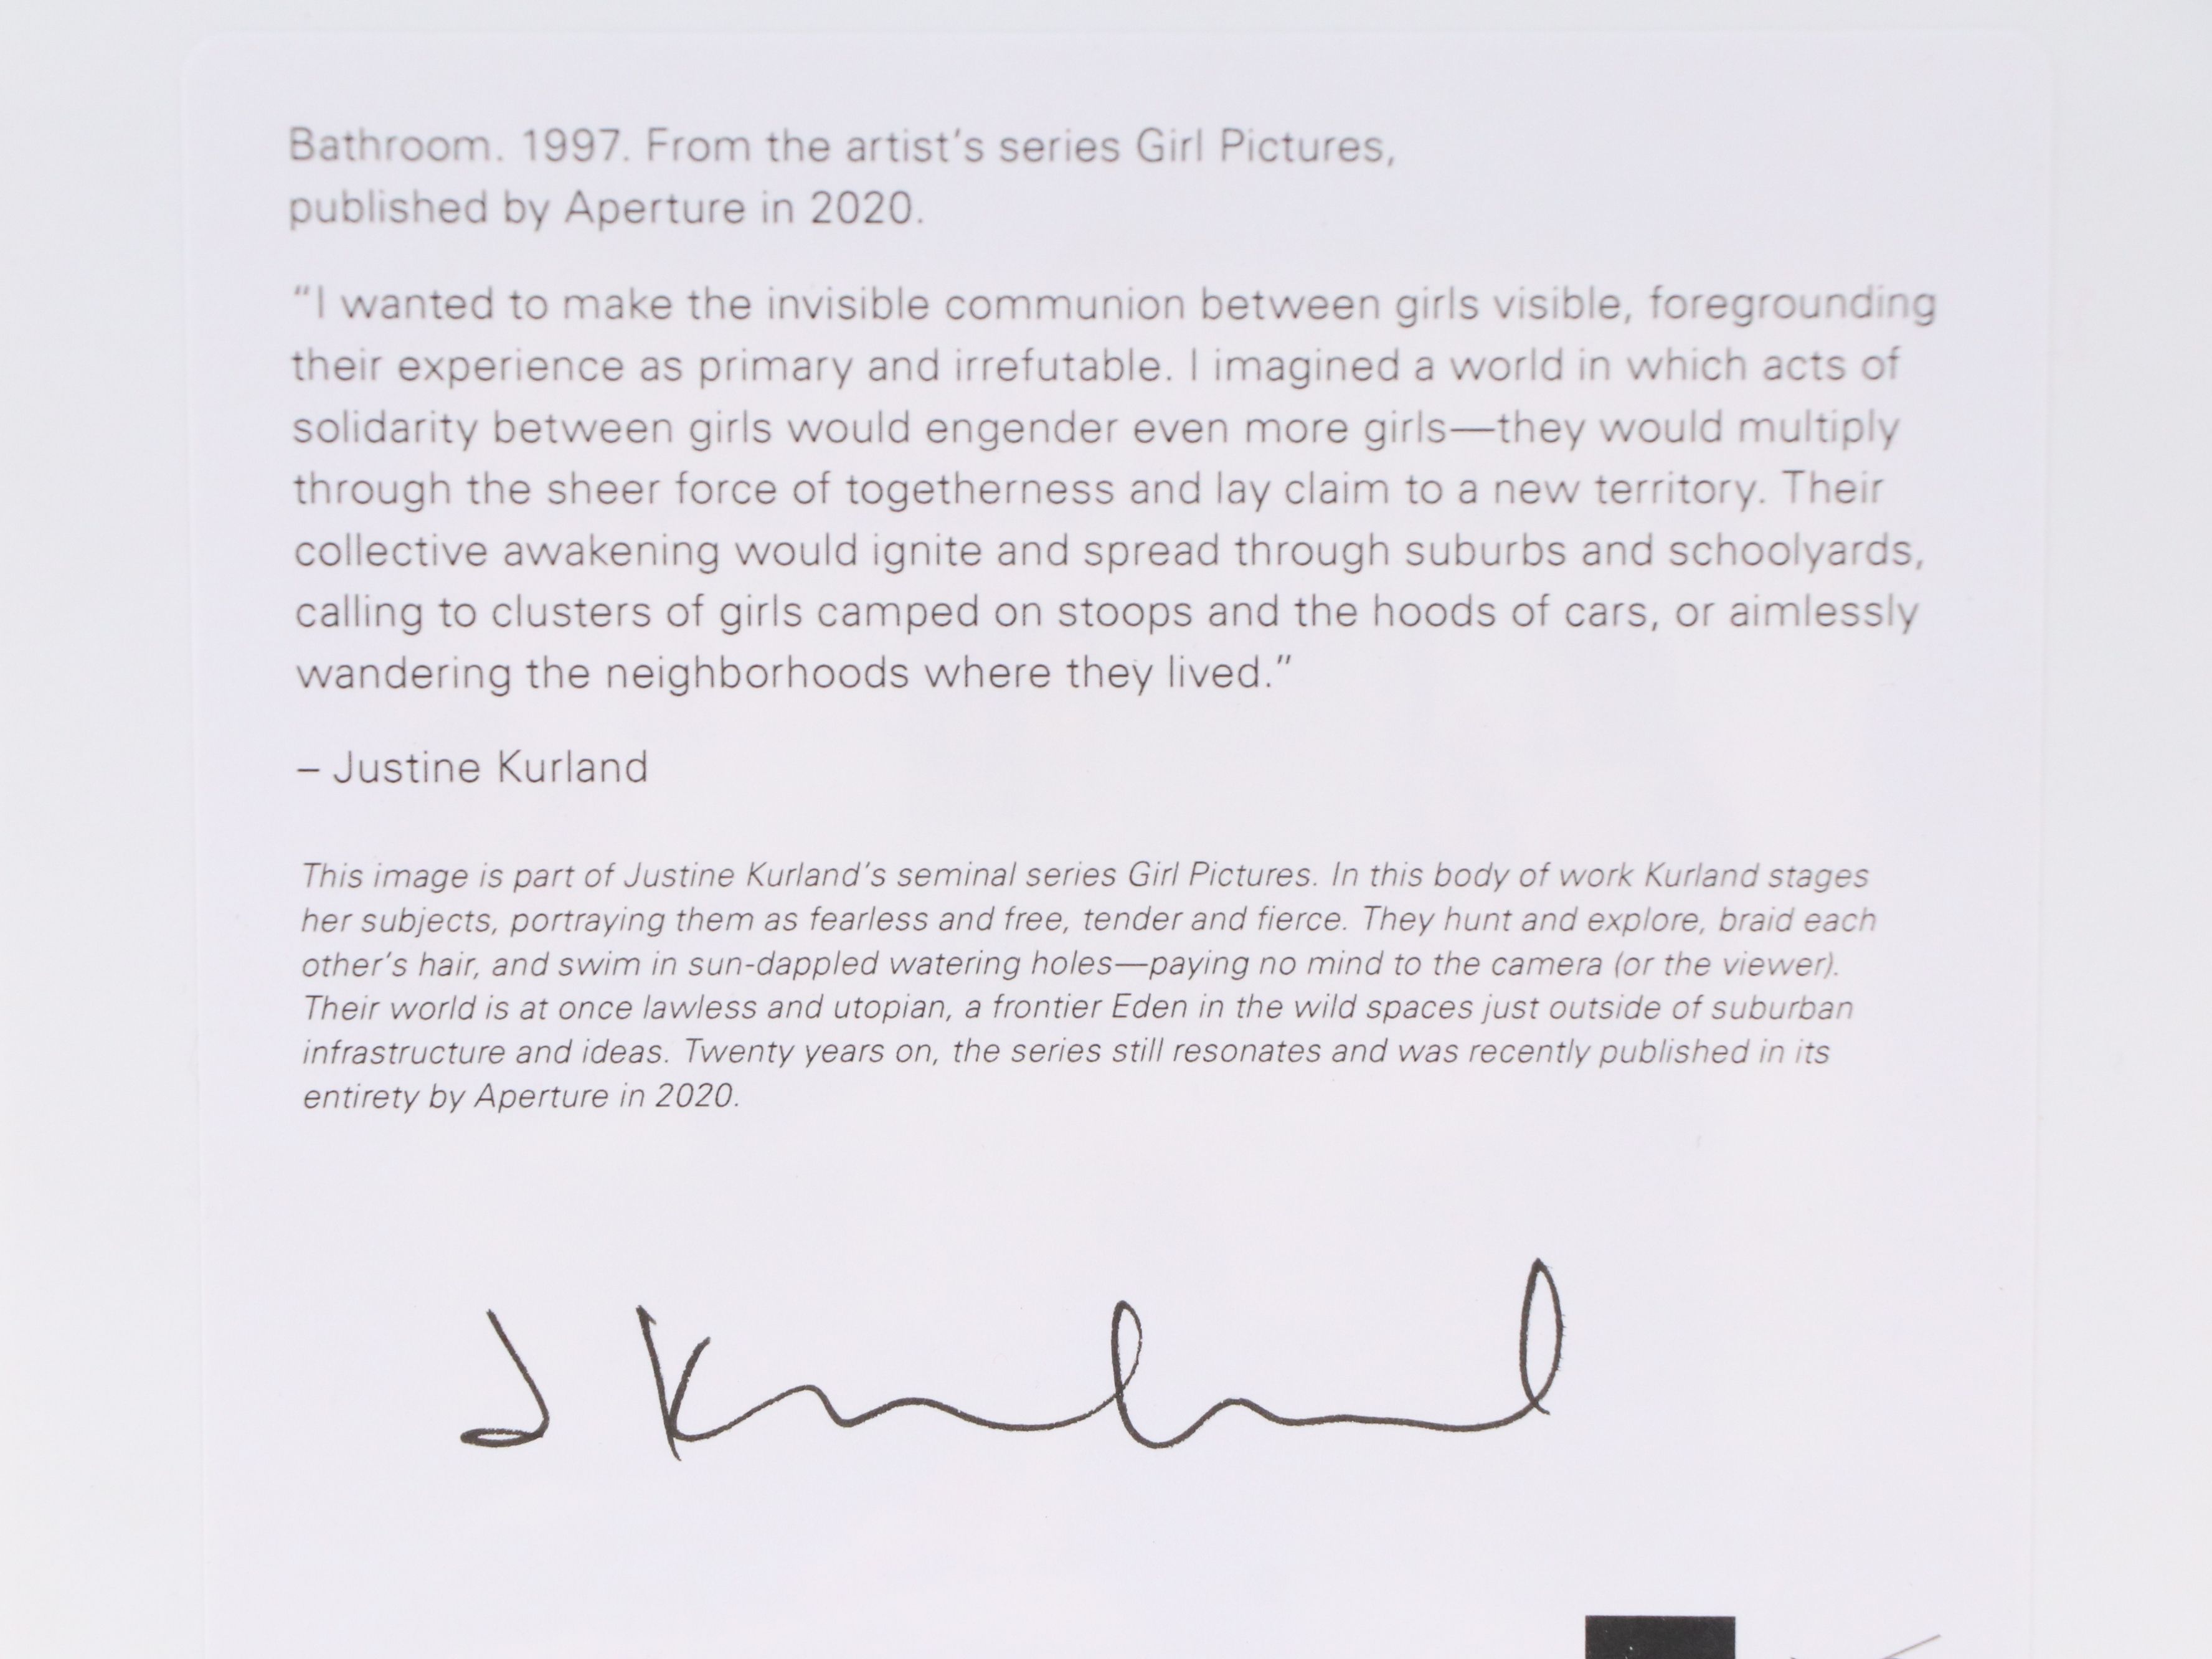 Bathroom. 1997. From the artist's series Girl Pictures,
published by Aperture in 2020.
“I wanted to make the invisible communion between girls visible, foregrounding
their experience as primary and irrefutable. I imagined a world in which acts of
solidarity between girls would engender even more girls—they would multiply
through the sheer force of togetherness and lay claim to a new territory. Their
collective awakening would ignite and spread through suburbs and schoolyards,
calling to clusters of girls camped on stoops and the hoods of cars, or aimlessly
wandering the neighborhoods where they lived.”
– Justine Kurland
This image is part of Justine Kurland's seminal series Girl Pictures. In this body of work Kurland stages
her subjects, portraying them as fearless and free, tender and fierce. They hunt and explore, braid each
other's hair, and swim in sun-dappled watering holes—paying no mind to the camera (or the viewer).
Their world is at once lawless and utopian, a frontier Eden in the wild spaces just outside of suburban
infrastructure and ideas. Twenty years on, the series still resonates and was recently published in its
entirety by Aperture in 2020.
J Kurland